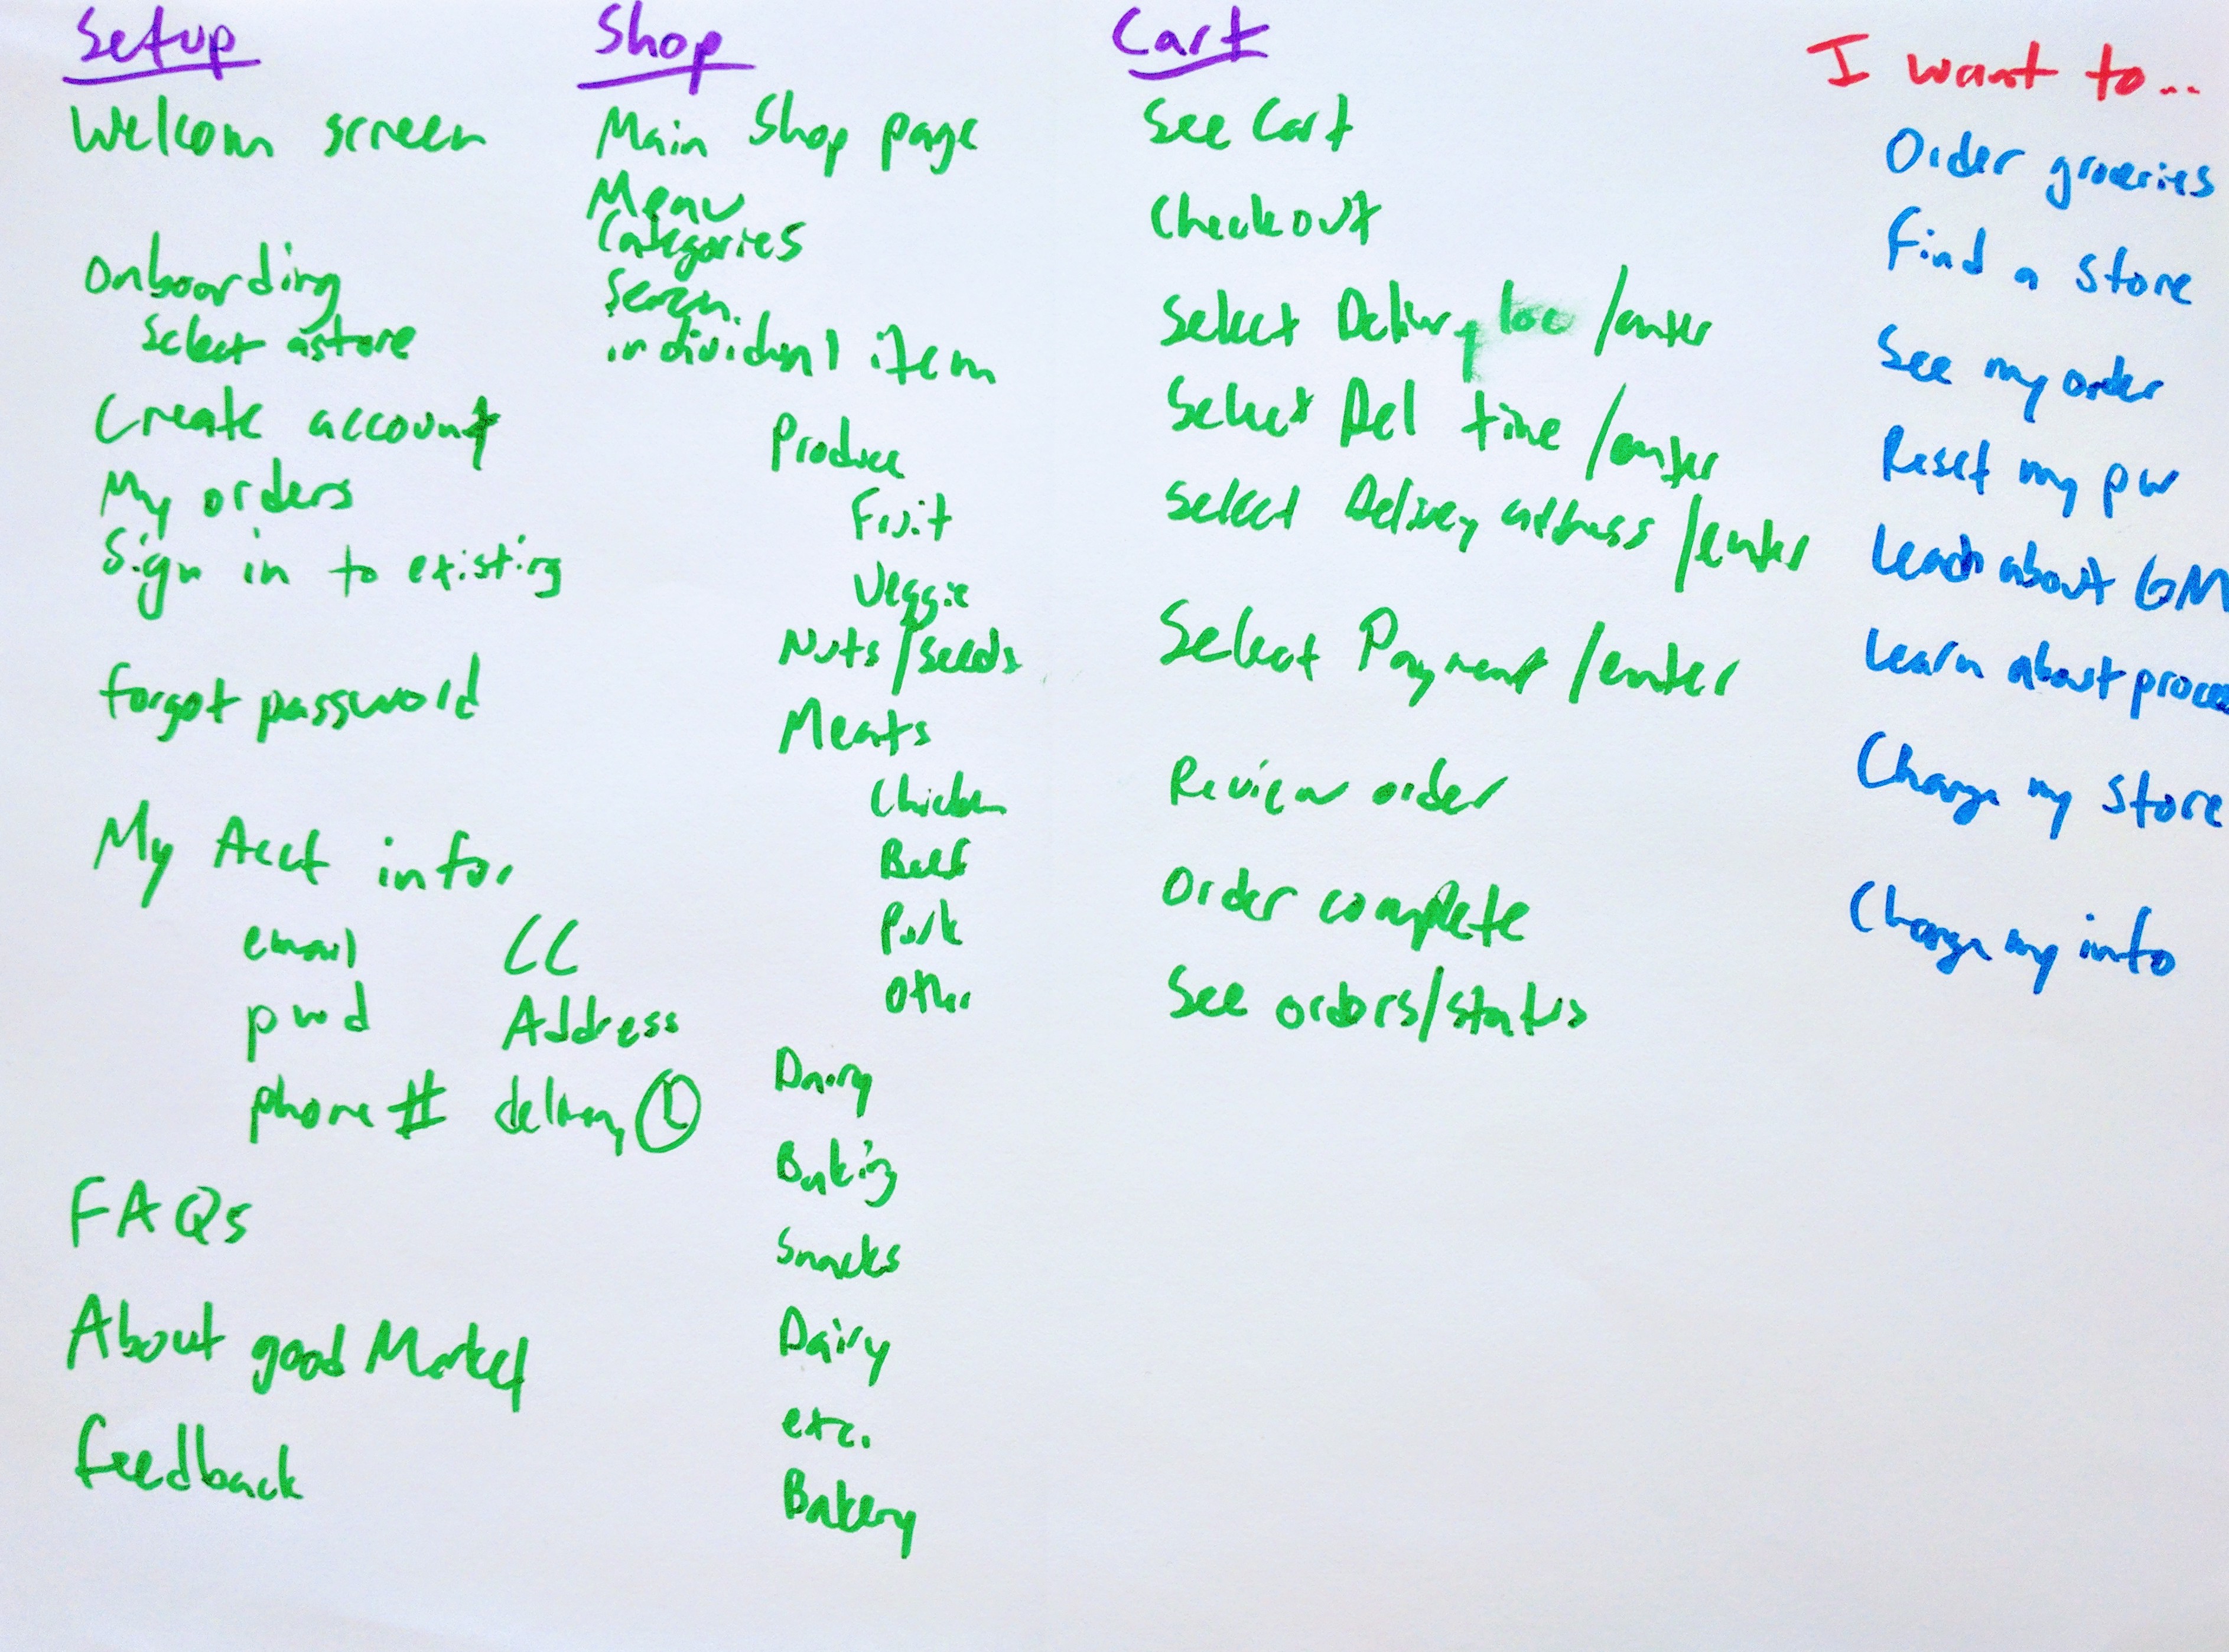 Setup
Welcom screen
Onboarding
Select a store
Create account
My orders
Sign in to existing
forgot password
My Acct infor
email CC
pwd Address
phone # delivery
FAQs
About good Market
Feedback
Shop
Main Shop page
Menu
Categories
Search
individual item
Produce
Fruit
Veggie
Nuts/seeds
Meats
Chicken
Beef
Pork
Other
Dairy
Baking
Snacks
Dairy
etc.
Bakery
Cart
See Cart
Checkout
Select Delivery loc /enter
Select Del time /enter
Select Delivery address /enter
Select Payment /enter
Review order
Order complete
See orders/status
I want to...
Order groceries
Find a store
See my order
Reset my pw
Learn about GM
Learn about proce
Change my store
Change my info